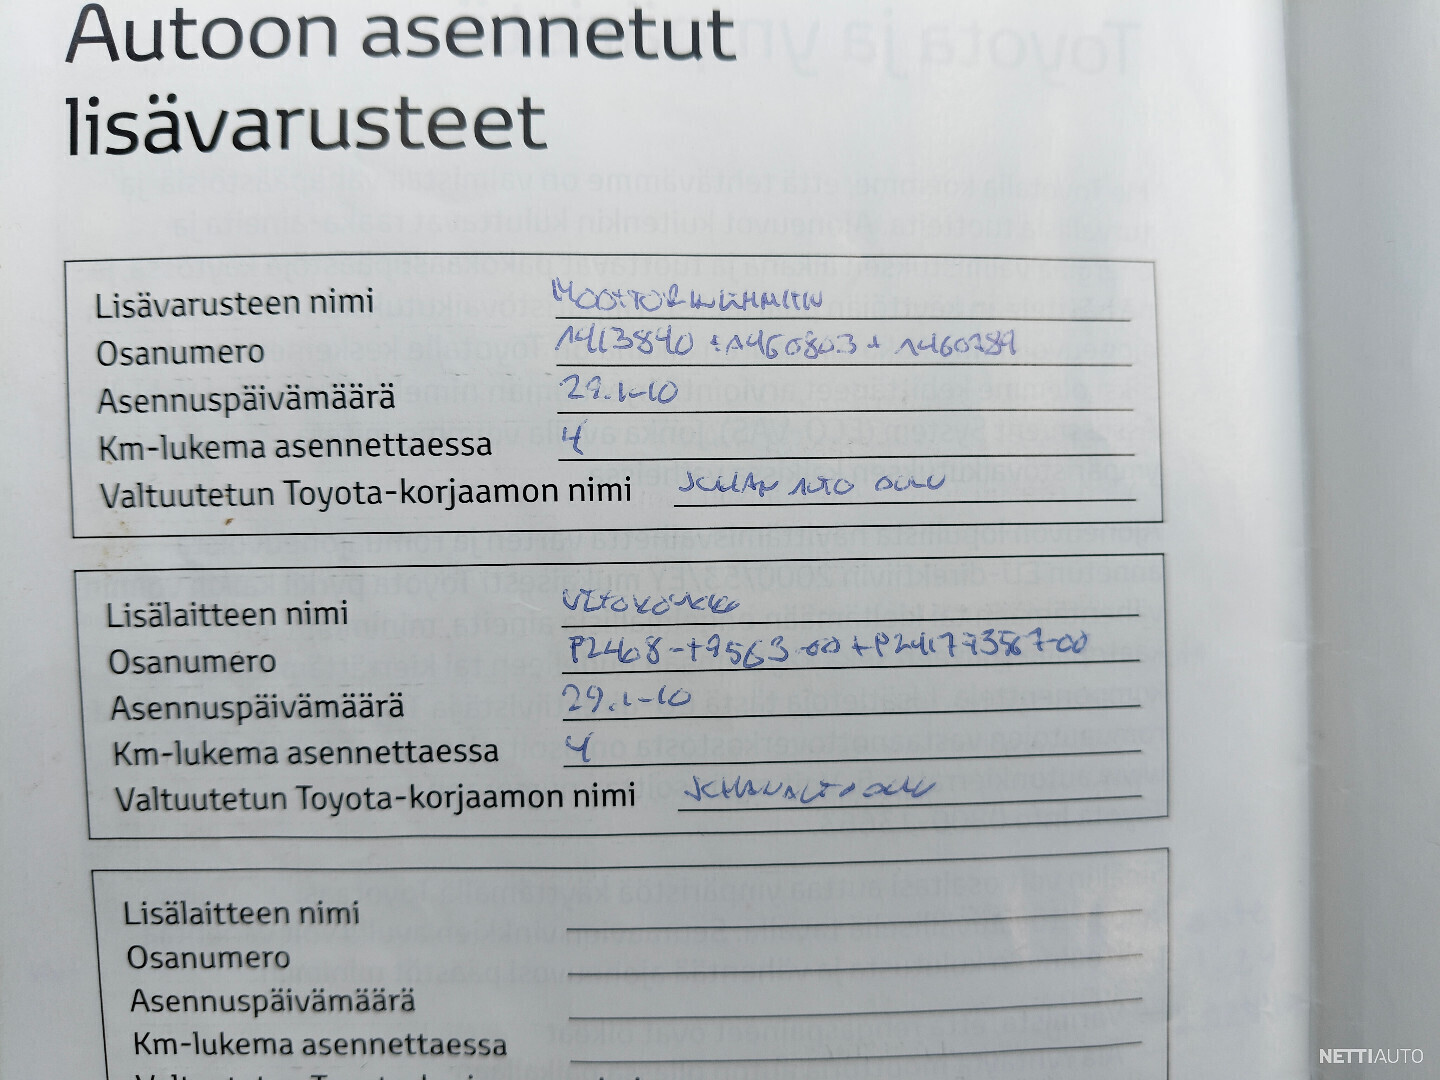 Autoon asennetut
lisävarusteet
Lisävarusteen nimi MOOTTORINLÄMMITIN
Osanumero 1413840 + 1460803 + 1460789
Asennuspäivämäärä 29.1-10
Km-lukema asennettaessa 4
Valtuutetun Toyota-korjaamon nimi AUTO OULU
Lisälaitteen nimi VETOKOUKKU
Osanumero
Asennuspäivämäärä 29.1-10
Km-lukema asennettaessa 4
Valtuutetun Toyota-korjaamon nimi OULU
Lisälaitteen nimi
Osanumero
Asennuspäivämäärä
Km-lukema asennettaessa
Valtuutetun Toyota-korjaamon nimi
NETTIAUTO